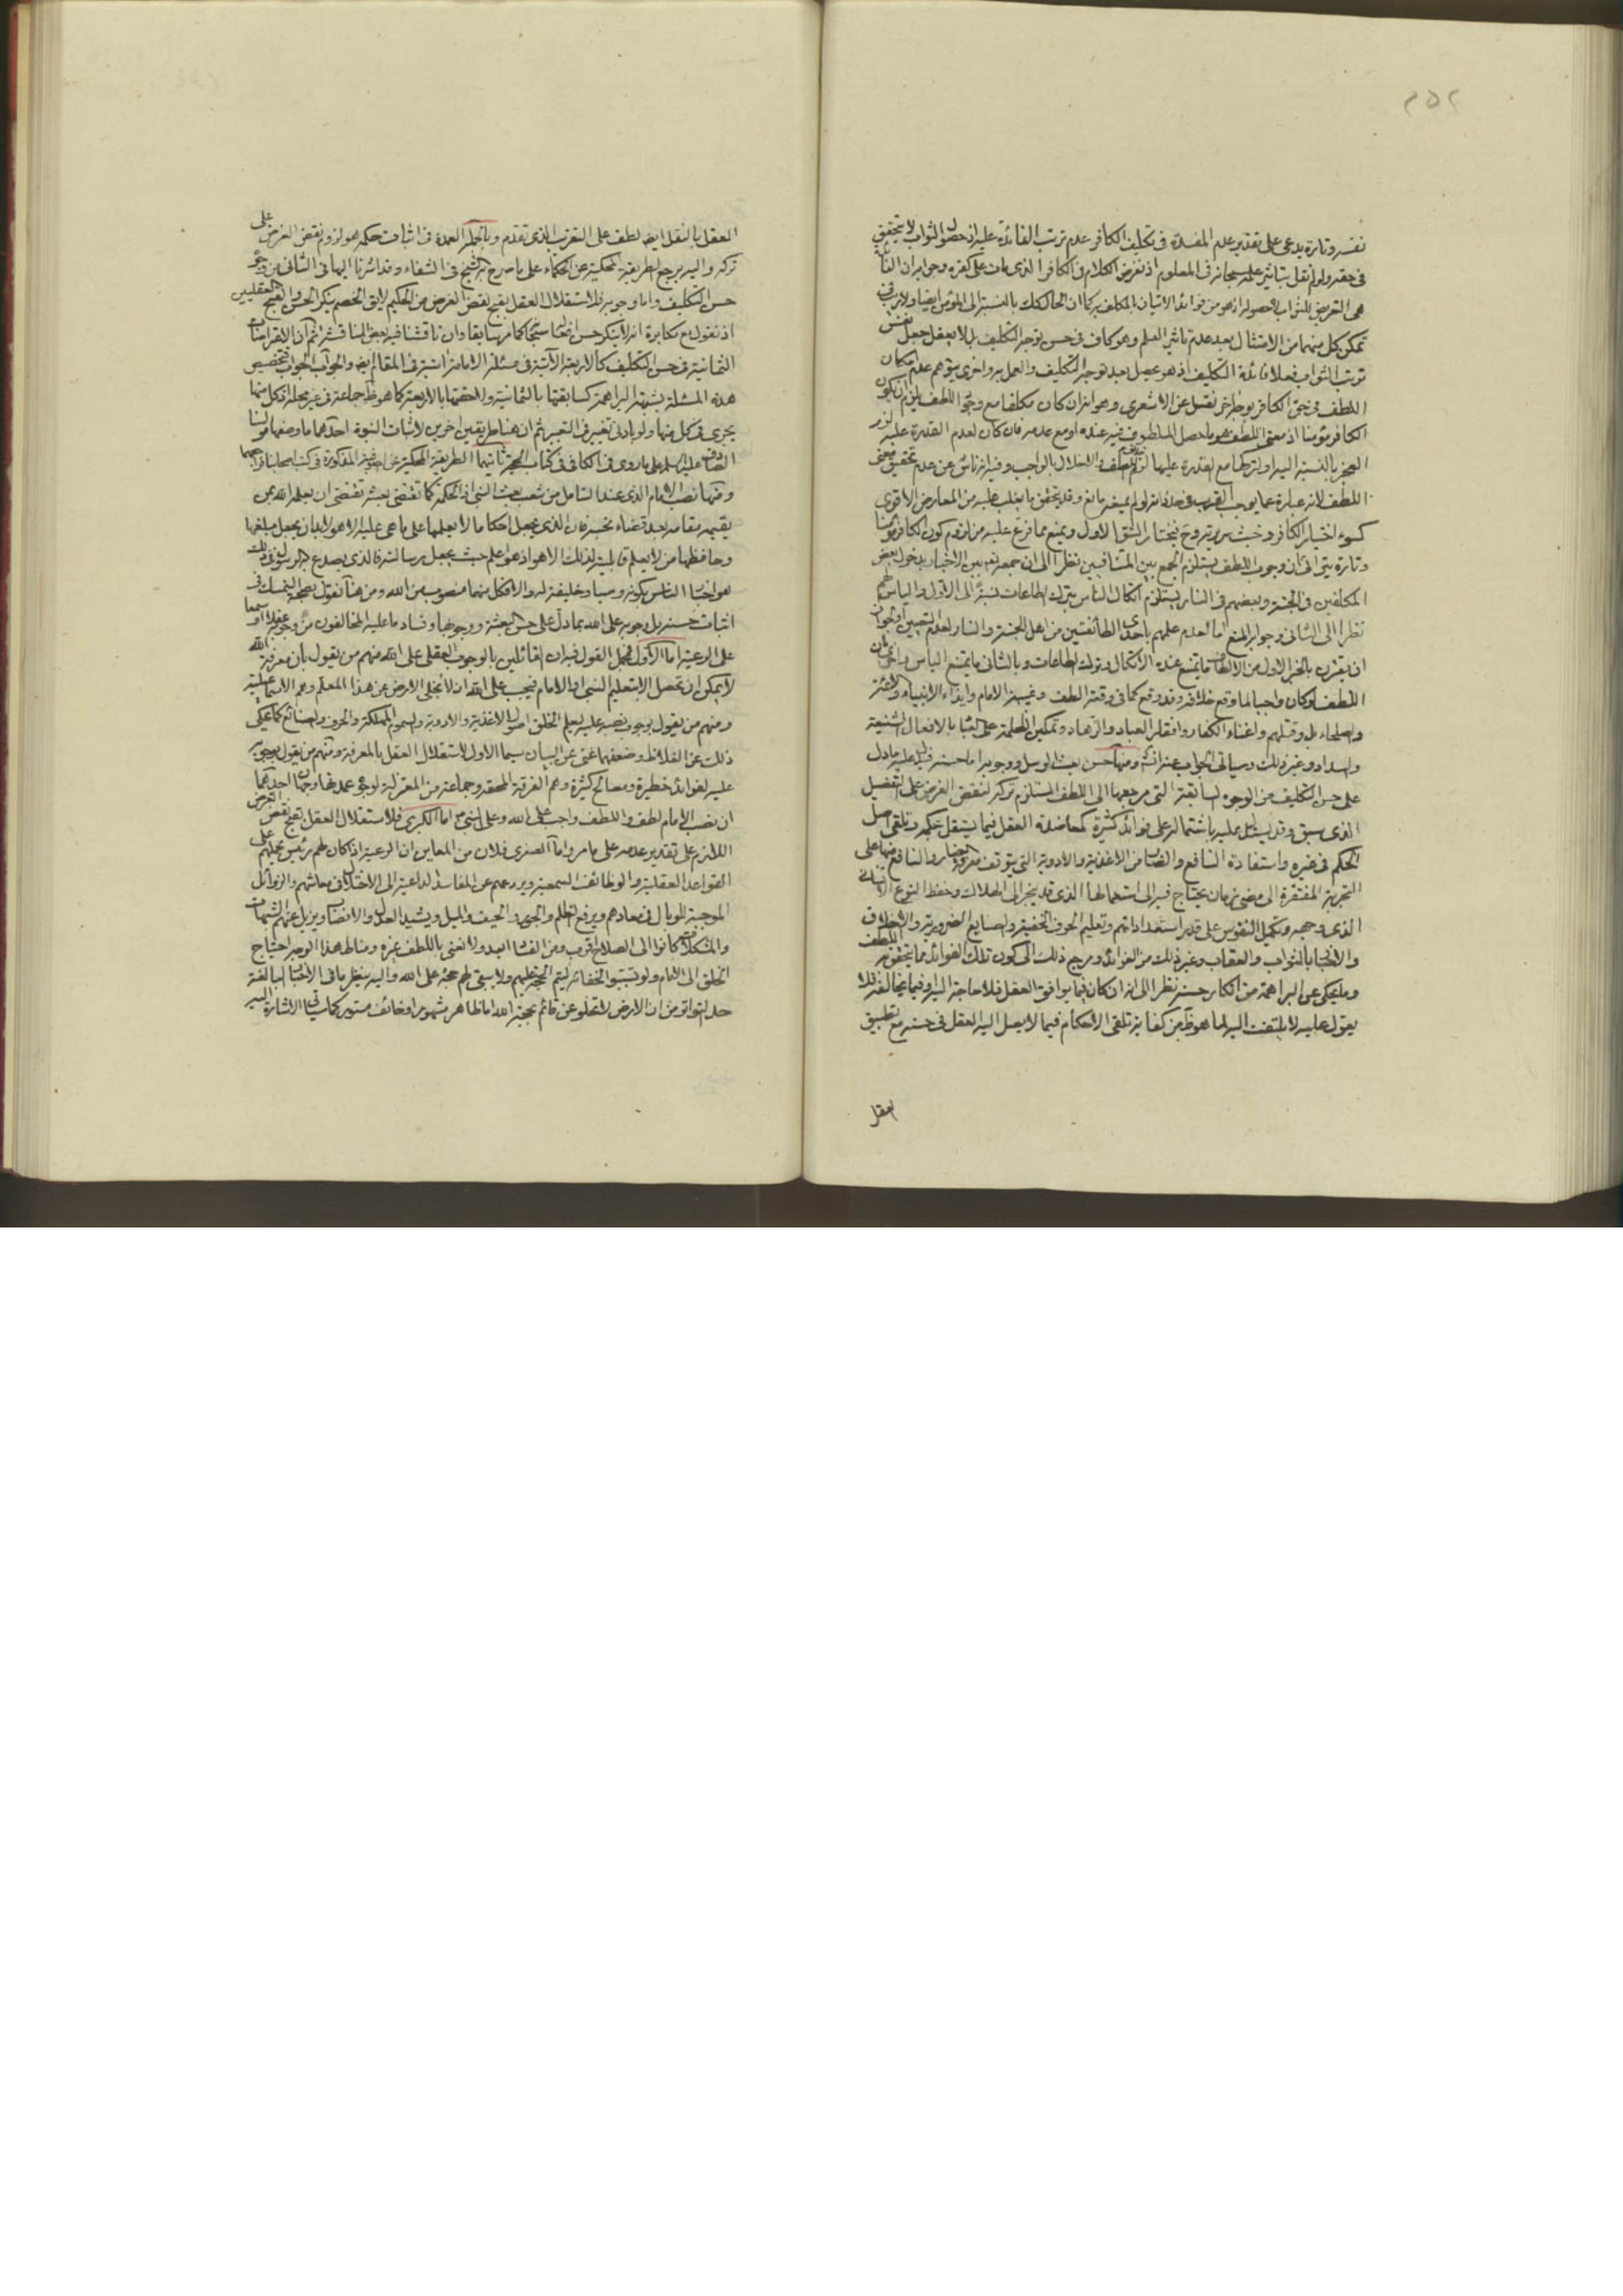 ٢٥٢
نفسه وتارة يدعى على تقدير عدم المفسدة في تكليف الكافر عدم ترتب الفائدة عليه اذ حصول الثواب لا يتحقق
في حقه ولو لم نقل بتاثير علمه سبحانه في المعلوم اذ نفرض الكلام في الكافر الذي مات على كفره وجوابه ان
هي التعريض للثواب لا حصوله اذ هو من فوائد الاتيان بالمكلف به كما ان الحال كذلك بالنسبة الى المؤمن ايضا ولا ريب في
تمكن كل منهما من الامتثال بعد عدم تاثير العلم وهو كاف في حسن توجه التكليف بل لا يعقل جعل نفس
ترتب الثواب فعلا فائدة التكليف اذ هو يحصل بعد توجه التكليف والعمل به واخرى بتوهم عدم امكان
اللطف في حق الكافر بوجه اخر نقل عن الاشعري وهو انه ان كان مكلفا مع وجود اللطف يلزم ان يكون
الكافر مؤمنا اذ معنى اللطف هو ما حصل الملطوف فيه عنده او مع عدمه فان كان لعدم القدرة عليه لزم
العجز بالنسبة اليه او لتركها مع القدرة عليها لزم والاخلال بالواجب وفيه انه ناش عن عدم تحقيق معنى
اللطف لانه عبارة عما يوجب القرب لولم يمنعه مانع وقد يتحقق ما يغلب عليه من المعارض الاقوى
كسوء اختيار الكافر وخبث سريرته وح فيختار الشق الاول ويمنع مما فرع عليه من لزوم كون الكافر مؤمنا
وتارة يترا ان وجوب اللطف يستلزم الجمع بين المتنافيين نظرا الى ان جمعه بين الاخبار بدخول بعض
المكلفين في الجنة وبعضهم في النار يستلزم اتكال الناس بترك الطاعات نسبة الى الاول والياس لهم
نظرا الى الثاني وجوابه المنع اما لعدم علمهم باحدى الطائفتين من اهل الجنة والنار لعدم التعيين او لجواز
ان يقترن بالخبر الاول من الالطاف ما يمتنع عنده الاتكال وترك الطاعات وبالثاني ما يمتنع الياس واخرى بان
اللطف لو كان واجبا لما وقع خلافه وقد وقع كما في وقعة الطف وغيبة الامام وايذاء الانبياء والائمة
والصلحاء بل وقتلهم واغناء الكفار وافقار العباد والزهاد وتمكين الظلمة على العباد بالافعال الشنيعة
وغير ذلك وسياتي الجواب عنه انشه ومنها حسن بعث الرسل ووجوبه اما حسنه فيدل عليه ما دل
على حسن التكليف من الوجوه السابقة التي مرجعها الى اللطف المستلزم تركه لنقض الغرض على التفصيل
الذي سبق وقد يستدل عليه باشتماله على فوائد كثيرة كمعاضدة العقل فيما يستقل بحكمه وتلقي اصل
الحكم في غيره واستفادة النافع والضار من الاغذية والادوية التي يتوقف معرفة الضار والنافع منها على
التجربة المفتقرة الى مضي زمان يحتاج فيه الى استعمالها الذي قد ينجر الى الهلاك وحفظ النوع
وتكميل النفوس على قدر استعداداتهم وتعليم الحرف الخفية والصنايع الضرورية والاخلاق
والاخبار بالثواب والعقاب وغير ذلك من الفوائد ومرجع ذلك الى كون تلك الفوائد مما يتحقق به اللطف
وما يحكى عن البراهمة من انكار حسنه نظرا الى انه ان كان فيما يوافق العقل فلا حاجة اليه او فيما يخالفه فلا
يعول عليه لا يلتفت اليه لما هو ظ من كفاية تلقي الاحكام فيما لا يصل اليه العقل في حسنه مع تطبيق
العقل
العقل بالنقل ايضا لطف على التقريب الذي تقدم وبالجملة العمدة في اثبات حكمه هو لزوم نقض الغرض على
تركه واليه يرجع الطريقة المحكية عن الحكماء على ما صرح به الشيخ في الشفاء وقد اشرنا اليها في الثاني من وجوه
حسن التكليف واما وجوبه فلاستقلال العقل بقبح نقض الغرض من الحكيم لا يق الخصم ينكر الحسن والقبح العقليين
اذ نقول مع مكابرة انه لا ينكر كما مر سابقا وان ناقشنا فيه بعض المناقشة ثم ان الاعتراضات
الثمانية في حسن التكليف كالاربعة الآتية في مسئلة الامامة اتية في المقام ايضا والجواب الجواب فتخصيص
هذه المسئلة بشبهة البراهمة كسابقتها بالثمانية ولاحقتها بالاربعة كما هو ظ جماعة في غير محله اذ كل منها
يجري في كل منها ولو بادنى تغيير في التعبير ثم ان هنا طريقين اخرين لاثبات النبوة احدهما ما وصفها مولانا
الصادق عليه السلم على ما روي في الكافي في كتاب الحجة ثانيهما الطريقة المحكية المذكورة في كتب اصحابنا فراجعها
ومنها نصب الامام الذي عندنا شامل من شعب بعث النبي اذ الحكمة كما تقتضي بعثه تقتضي ان يعلمه الله بمن
يقيمه مقامه بعده فان الذي يجعل احكاما لا يعلمها على ما هي عليه الا هو لابد ان يجعل مبلغها
وحافظها من لا يعلم قابليته لذلك الا هو اذ هو اعلم حيث يجعل رسالته فالذي يصدع به الرسول في ذلك
هو اخبار الناس بكونه وصيا وخليفة له والا فكل منهما منصوب من الله ومن هنا نقول بصحة التمسك في
اثبات حسنه بل وجوبه على الله بما دل على حسن البعثة ووجوبها وفساد ما عليه المخالفون من وجوبه عقلا او سمعا
على الرعية اما الاول فمجمل القول فيه ان القائلين بالوجوب العقلي على الله منهم من يقول بان معرفة الله
لا يمكن ان تحصل الا بتعليم النبي او الامام فيجب على الله ان لا يخلي الارض عن هذا المعلم وهم الاسماعيلية
ومنهم من يقول بوجوب نصبه عليه ليعلم الخلق احوال الاغذية والادوية والسموم المهلكة والحرف والصنائع كما حكي
ذلك عن الغلاة وضعفهما غني عن البيان سيما الاول لاستقلال العقل بالمعرفة ومنهم من يقول بوجوبه
عليه لفوائد خطيرة ومصالح كثيرة وهم الفرقة المحقة وجماعة من المعتزلة لوجوه عمدتها وجهان احدهما
ان نصب الامام لطف واللطف واجب على الله وعلى النبي ص اما الكبرى فلاستقلال العقل بقبح نقض الغرض
اللازم على تقدير عدمه على ما مر واما الصغرى فلان من المعاين ان الرعية اذا كان لهم رئيس يحملهم على
القواعد العقلية والوظائف السمعية ويردعهم عن المفاسد الداعية الى الاختلال في معاشهم والرذائل
الموجبة للوبال في معادهم ويرفع الظلم والجور والحيف والميل ويشيد العدل والانصاف ويزيل عنهم الشبهات
والمشكلات كانوا الى الصلاح اقرب ومن الفساد ابعد ولا نعني باللطف غيره ومناط هذا الوجه احتياج
الخلق الى الامام ليتم الحجة عليهم ولا يبقى لهم حجة على الله واليه ينظر ما في الاخبار البالغة
حد التواتر من ان الارض لا تخلو عن قائم بحجة الله اما ظاهر مشهور او خائف مستور كما سياتي الاشارة اليه